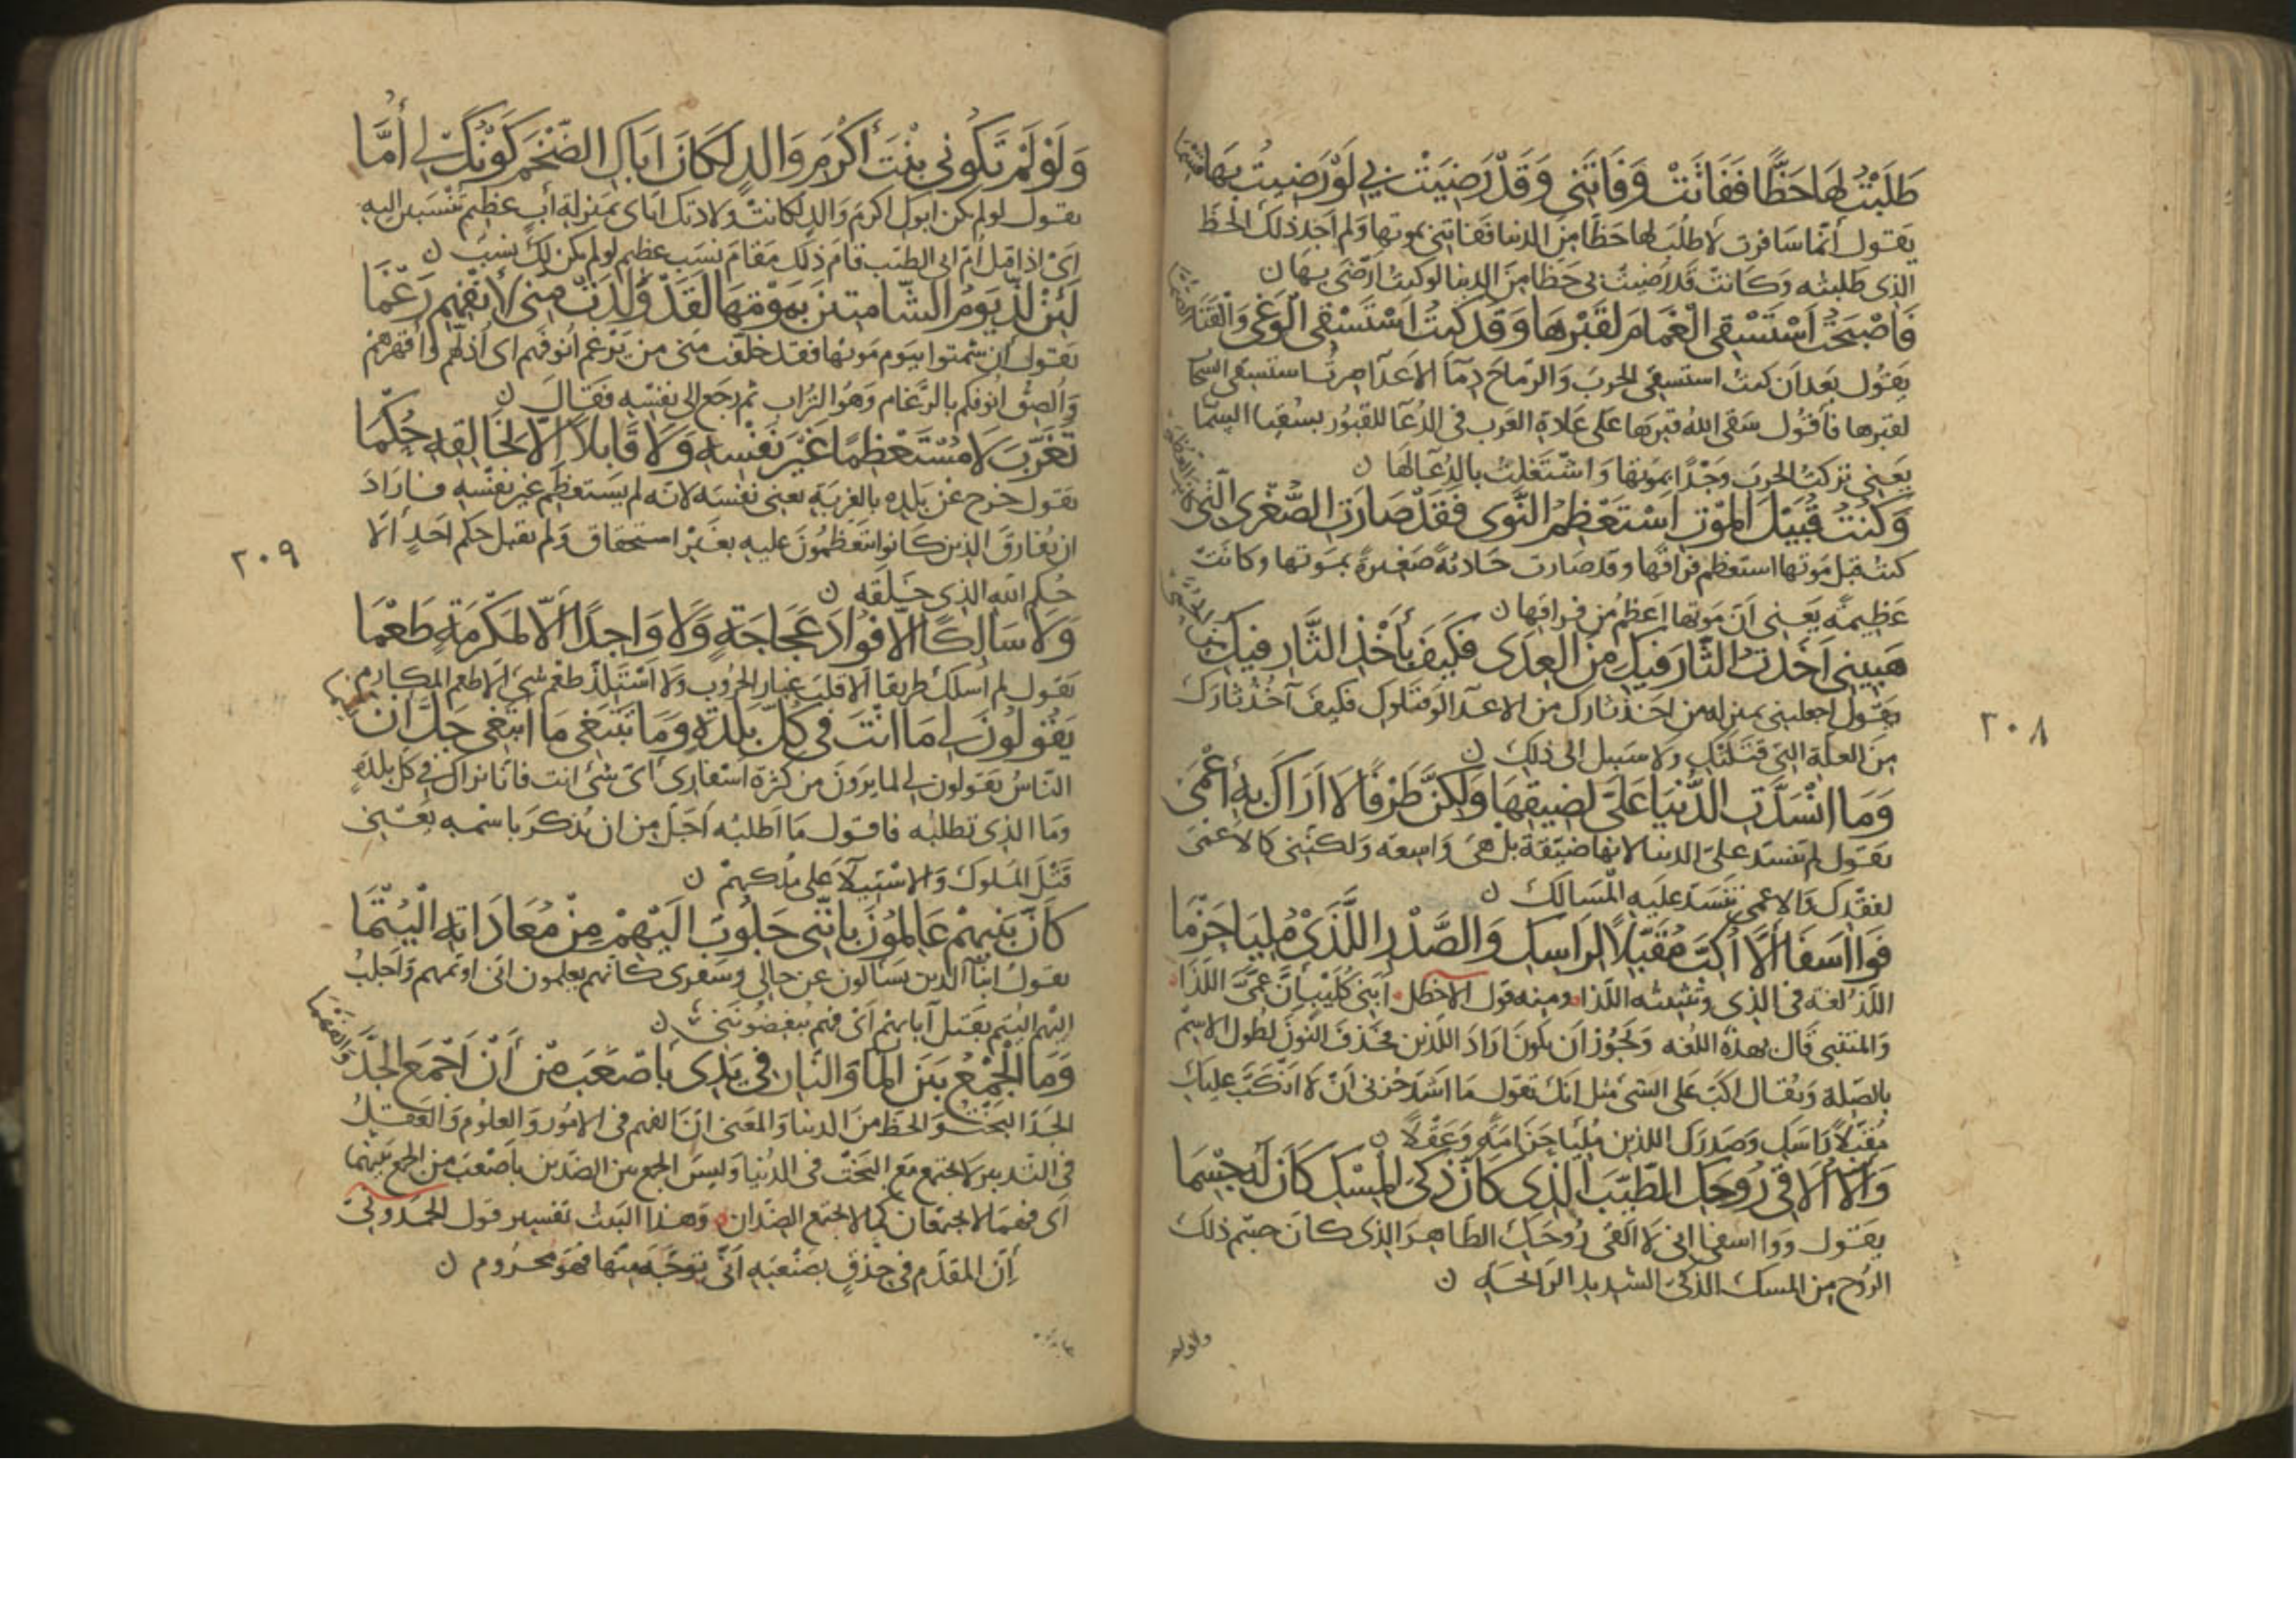 طَلَبْتُ لَهَا حَظًّا فَفَاتَتْ وَفَاتَنِي وَقَدْ رَضِيَتْ بِي لَوْ رَضِيتُ بِهَا قِسْمَا
يقول انما سافرت لاطلب لها حظا من الدنيا ففاتتني بموتها ولم اجد ذلك الحظ
الذي طلبته وكانت قد رضيت بي حظا من الدنيا لو كنت ارضى بها ن
فَاصْبَحْتُ اَسْتَسْقِي الْغَمَامَ لِقَبْرِهَا وَقَدْ كُنْتُ اَسْتَسْقِي الْوَغَى وَالْقَنَا الصُّمَّا
يقول بعد ان كنت استسقي الحرب والرماح دماء الاعداء صرت استسقي السحا
لقبرها فاقول سقى الله قبرها على عادة العرب في الدعاء للقبور بسقيا السما
يعني تركت الحرب وجدا بموتها واشتغلت بالدعاء لها ن
وَكُنْتُ قُبَيْلَ الْمَوْتِ اَسْتَعْظِمُ النَّوَى فَقَدْ صَارَتِ الصُّغْرَى الَّتِي كَانَتِ العُظْمَى
كنت قبل موتها استعظم فراقها وقد صارت حادثة صغيرة بموتها وكانت
عظيمة يعني ان موتها اعظم من فراقها ن
هَبِينِي اَخَذْتُ الثَّارَ فِيكِ مِنَ الْعِدَى فَكَيْفَ بِأَخْذِ الثَّارِ فِيكِ مِنَ الحُمَّى
يقول اجعليني بمنزلة من اخذ ثارك من الاعداء لو قتلوك فكيف آخذ ثارك
من العلة التي قتلتك ولا سبيل الى ذلك ن
وَمَا انْسَدَّتِ الدُّنْيَا عَلَيَّ لِضِيقِهَا وَلَكِنَّ طَرْفًا لَا اَرَاكِ بِهِ أَعْمَى
يقول لم تنسد علي الدنيا لانها ضيقة بل هي واسعة ولكنني كالاعمى
لفقدك والاعمى تنسد عليه المسالك ن
فَوَا اَسَفَا اَلَّا اُكِبَّ مُقَبِّلًا لِرَاسِكِ وَالصَّدْرِ اللَّذَيْ مُلِيَا حَزْمَا
اللذ لغة في الذي وتثنيته اللذا ومنه قول الاخطل ابني كليب ان عمي اللذا
والمتنبي قال بهذه اللغه ويجوز ان يكون اراد اللذين فحذف النون لطول الاسم
بالصلة ويقال اكب على الشي مثل انك تقول ما اشد حزني ان لا انكب عليك
مقبلا راسك وصدرك اللذين مليا حزامة وعقلا ن
وَاَلَّا اُلَاقِي رُوحَكِ الطَّيِّبَ الَّذِي كَاَنَّ ذَكِيَّ الْمِسْكِ كَانَ لَهُ جِسْمَا
يقول ووا اسفي اني لا القى روحك الطاهر الذي كان جسم ذلك
الروح من المسك الذكي الشديد الرائحة ن
ولولم
٢٠٨
وَلَوْ لَمْ تَكُونِي بِنْتَ أَكْرَمِ وَالِدٍ لَكَانَ اَبَاكِ الضَّخْمَ كَوْنُكِ لِي أُمَّا
يقول لو لم يكن ابوك اكرم والد لكانت ولادتك اياي بمنزلة أب عظيم تنسبين اليه
اي اذا قيل ام ابي الطيب قام ذلك مقام نسب عظيم لو لم يكن لك نسب ن
لَئِنْ لَذَّ يَوْمُ الشَّامِتِينَ بِمَوْتِهَا لَقَدْ وَلَدَتْ مِنِّي لِأَنْفِهِمِ رَغْمَا
يقول ان شمتوا بيوم موتها فقد خلفت مني من يرغم انوفهم اي اذلهم واقهرهم
والصق انوفكم بالرغام وهو التراب ثم رجع الى نفسه فقال ن
تَغَرَّبَ لَا مُسْتَعْظِمًا غَيْرَ نَفْسِهِ وَلَا قَابِلًا اِلَّا لِخَالِقِهِ حُكْمَا
يقول خرج عن بلده بالغربة يعني نفسه لانه لم يستعظم غير نفسه فاراد
ان يفارق الذين كانوا يتعظمون عليه بغير استحقاق ولم يقبل حكم احد الا
حكم الله الذي خلقه ن
وَلَا سَالِكًا اِلَّا فُؤَادَ عَجَاجَةٍ وَلَا وَاجِدًا اِلَّا لِمَكْرُمَةٍ طَعْمَا
يقول لم اسلك طريقا الا قلب غبار الحروب ولا استلذ طعم شي الا طعم المكارم
يَقُولُونَ لِي مَا اَنْتَ فِي كُلِّ بَلْدَةٍ وَمَا تَبْتَغِي مَا اَبْتَغِي جَلَّ اَنْ يُسْمَى
الناس يقولون لي لما يرون من كثرة اسفاري اي شي انت فانا نراك في كل بلدة
وما الذي تطلبه فاقول ما اطلبه اجل من ان يذكر باسمه يعني
قتل الملوك والاستيلاء على ملكهم ن
كَاَنَّ بَنِيهِمْ عَالِمُونَ بِاَنَّنِي جَلُوبٌ اِلَيْهِمْ مِنْ مَعَادَاتِهِ الْيُتْمَا
يقول ابناء الذين يسألون عن حالي وسفري كانهم يعلمون اني اوتمهم واجلب
اليهم اليتم بقتل آبائهم اي فهم يبغضونني ن
وَمَا الْجَمْعُ بَيْنَ الْمَاءِ وَالنَّارِ فِي يَدِي بِاَصْعَبَ مِنْ أَنْ اَجْمَعَ الْجَدَّ وَالفَهْمَا
الجد البخت والحظ من الدنيا والمعنى ان الفهم في الامور والعلوم والعقل
في التدبير لا يجتمع مع البخت في الدنيا وليس الجمع بين الضدين باصعب من الجمع بينهما
اي فهما لا يجتمعان كما لا يجتمع الضدان وهذا البيت تفسير قول الحمدوني
إن المقدم في حذق بصنعته أنى توجه منها فهو محروم ن
٢٠٩